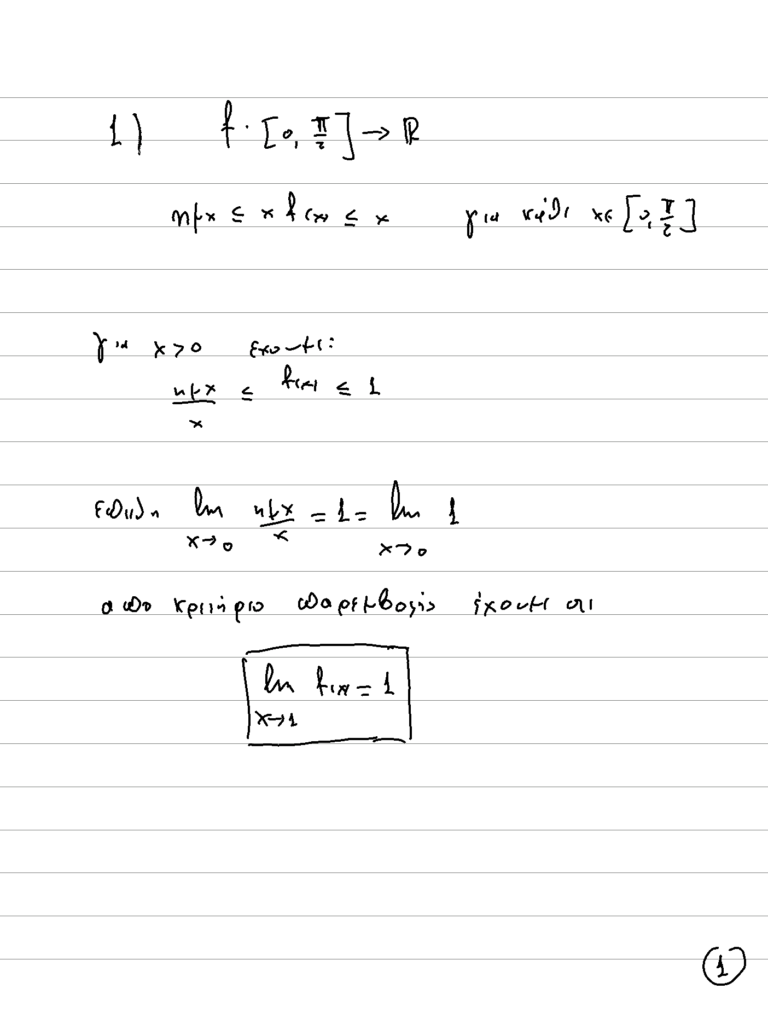 1) f: [0, π/2] → ℝ
ημx ≤ x f(x) ≤ x για κάθε x∈[0, π/2]
για x > 0 εχουμε:
ημx/x ≤ f(x) ≤ 1
επειδη lim x→0 ημx/x = 1 = lim x→0 1
απο κριτήριο παρεμβολής έχουμε οτι
lim x→1 f(x) = 1
1